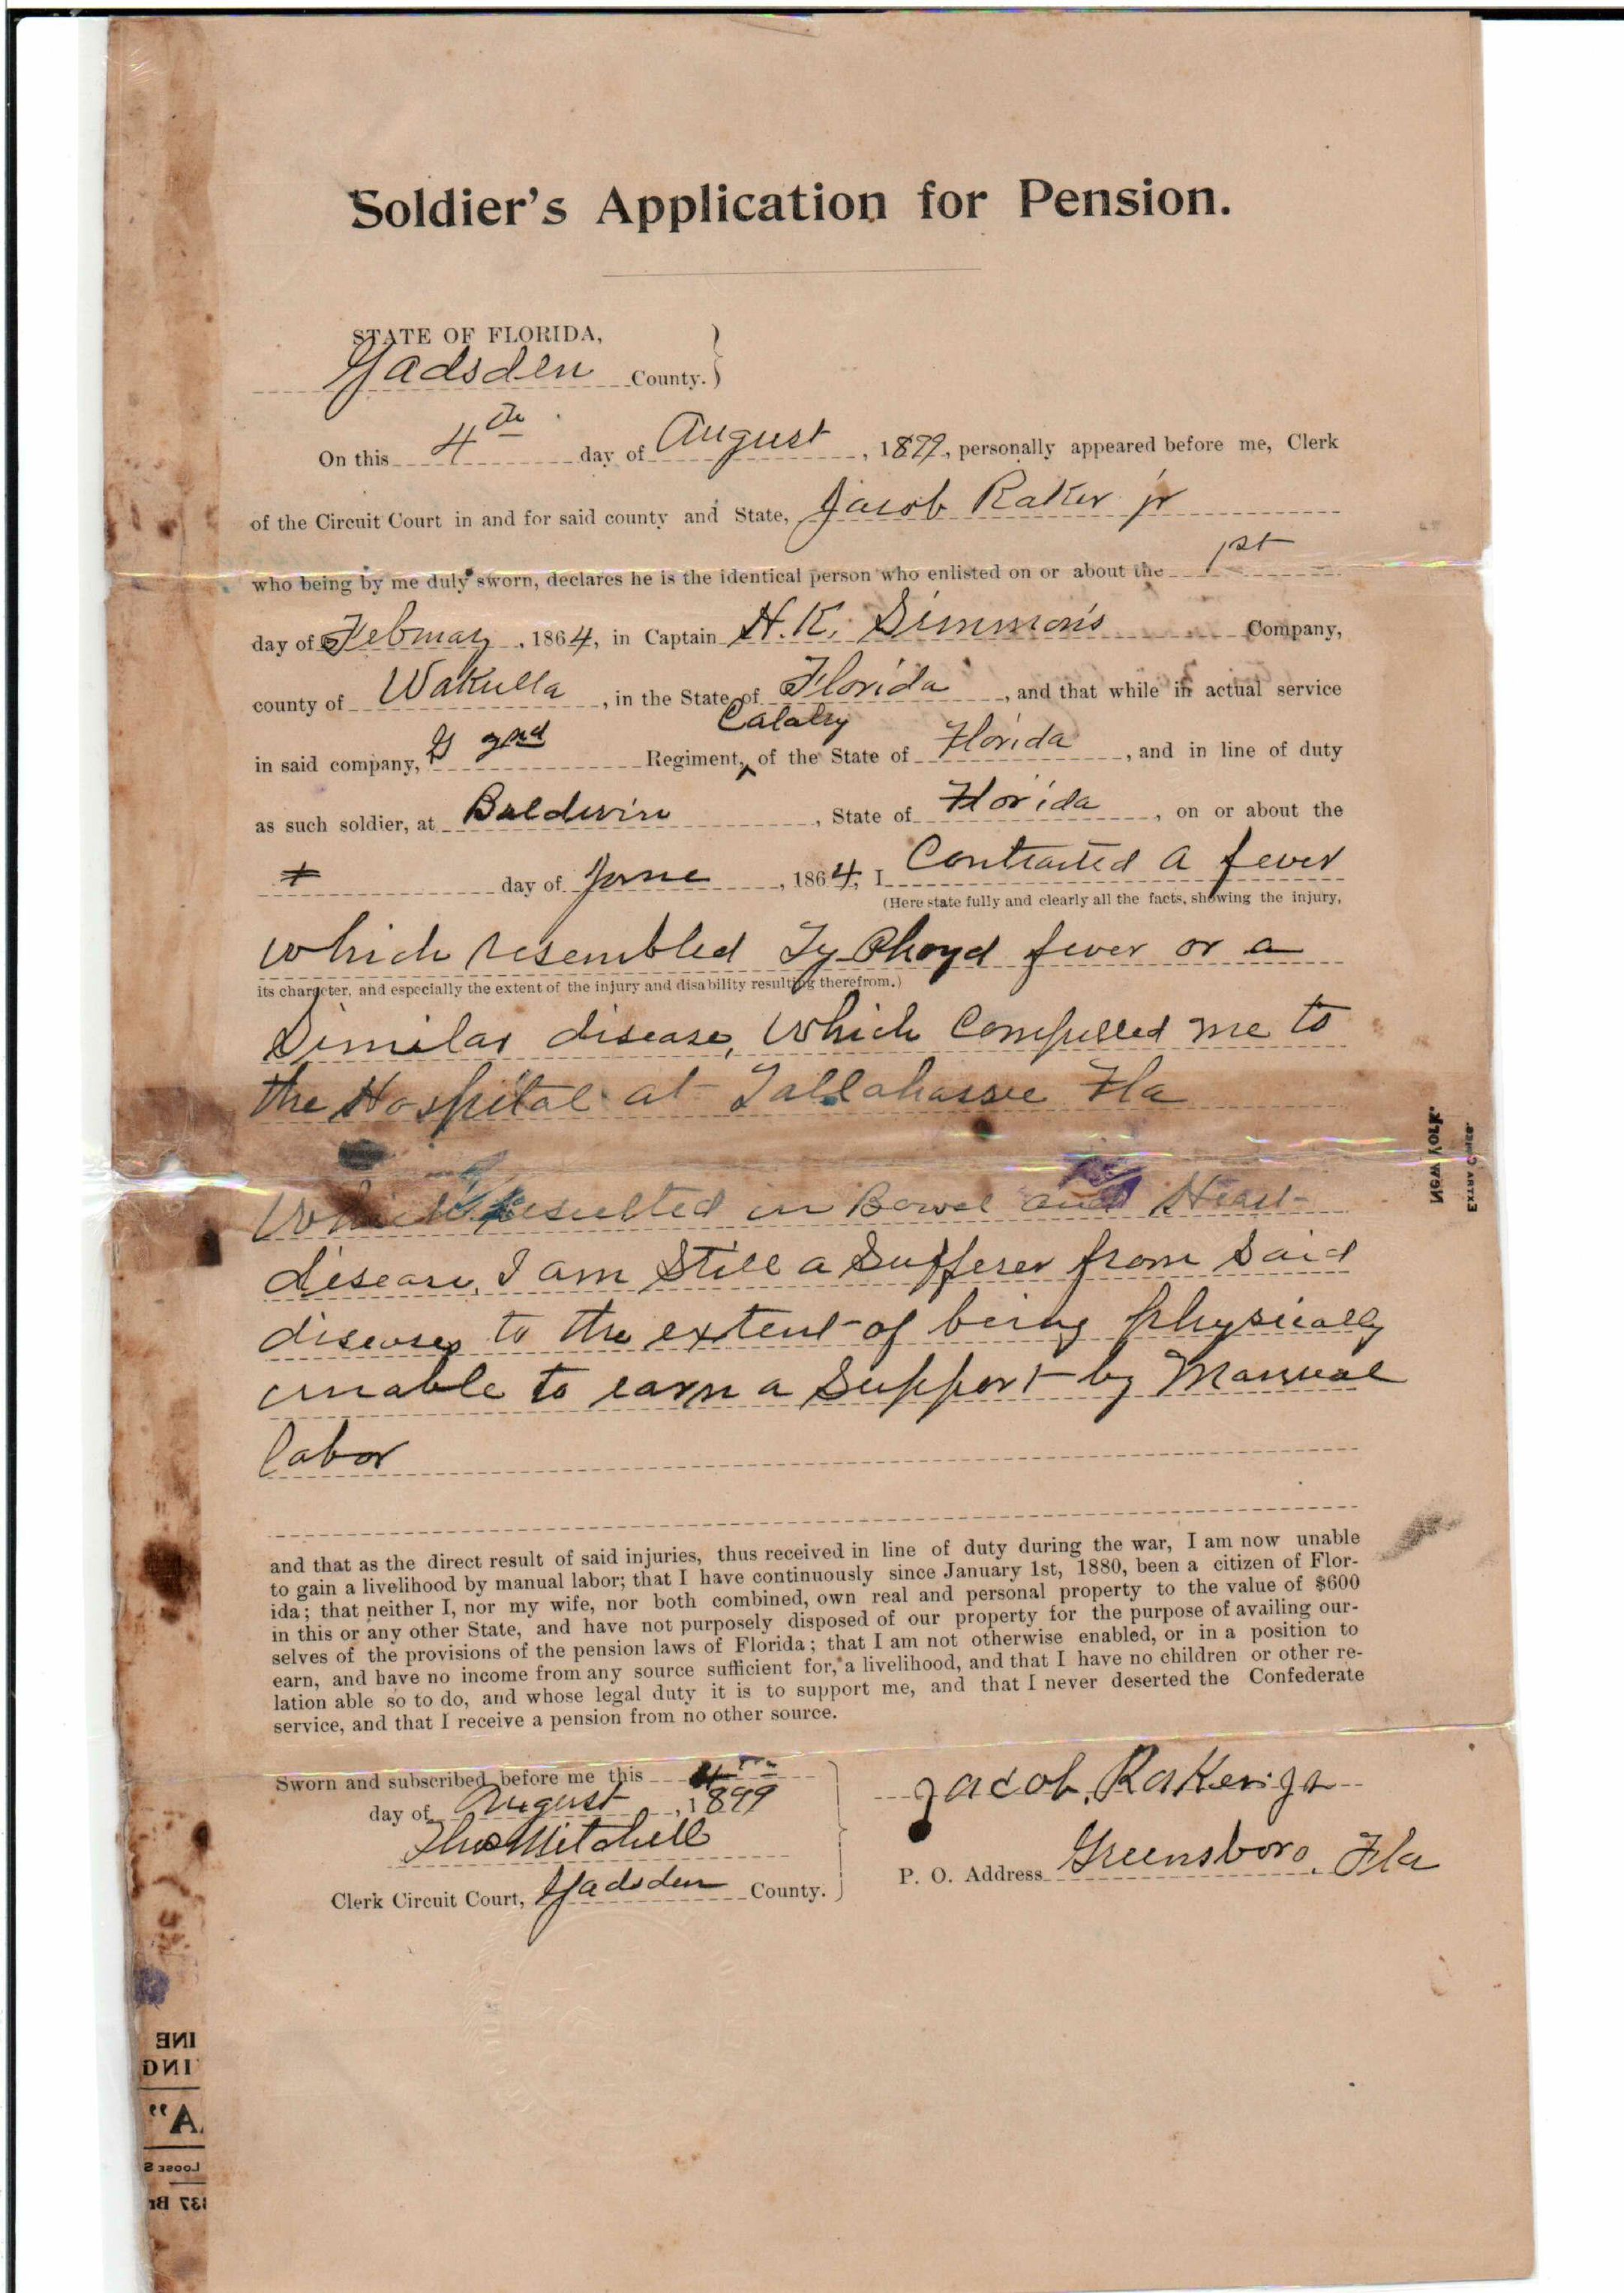 Soldier's Application for Pension.
STATE OF FLORIDA,
Gadsden County.
On this 4th day of August, 1899, personally appeared before me, Clerk
of the Circuit Court in and for said county and State, Jacob Raker jr
who being by me duly sworn, declares he is the identical person who enlisted on or about the 1st
day of Februay, 1864, in Captain H. K. Simmons Company,
county of Wakulla, in the State of Florida, and that while in actual service
Calalry
in said company, G 2nd Regiment, of the State of Florida, and in line of duty
as such soldier, at Baldwin, State of Florida, on or about the
day of June, 1864, I Contracted a fever
(Here state fully and clearly all the facts, showing the injury,
which resembled Ty-Phoyd fever or a
its character, and especially the extent of the injury and disability resulting therefrom.)
Similar disease, Which Compelled me to
the Hospital at Tallahassee Fla
Which resulted in Bowel and Heart
disease, I am Still a Sufferer from Said
diseases to the extent of being physically
unable to earn a Support by Manual
labor
and that as the direct result of said injuries, thus received in line of duty during the war, I am now unable
to gain a livelihood by manual labor; that I have continuously since January 1st, 1880, been a citizen of Flor-
ida; that neither I, nor my wife, nor both combined, own real and personal property to the value of $600
in this or any other State, and have not purposely disposed of our property for the purpose of availing our-
selves of the provisions of the pension laws of Florida; that I am not otherwise enabled, or in a position to
earn, and have no income from any source sufficient for, a livelihood, and that I have no children or other re-
lation able so to do, and whose legal duty it is to support me, and that I never deserted the Confederate
service, and that I receive a pension from no other source.
Sworn and subscribed before me this 4th
day of August, 1899
Thos Mitchell
Clerk Circuit Court, Gadsden County.
Jacob, Raker, jr
P. O. Address Greensboro, Fla
New York.
INE
ING
A"
Loose S
37 Br